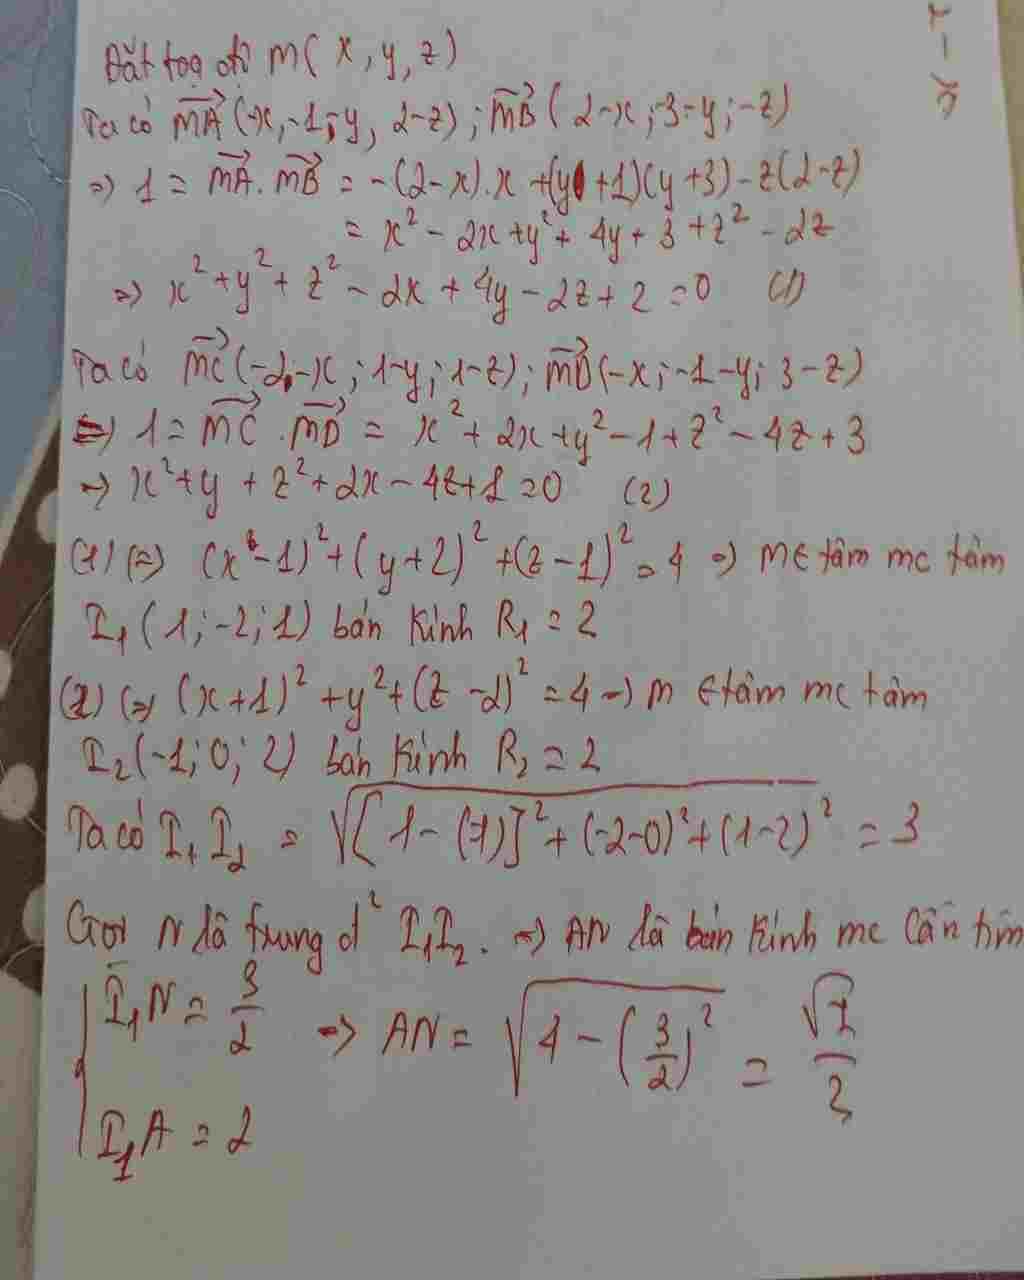 Đặt toạ độ M( x, y, z)
Ta có MA→(-x, -1-y, 2-z) ; MB→( 2-x ; -3-y ; -z)
⇒ 1 = MA→. MB→ = -(2-x).x +(y +1)(y+3) - z(2-z)
= x² - 2x + y² + 4y + 3 + z² - 2z
⇒ x² + y² + z² - 2x + 4y - 2z + 2 = 0 (1)
Ta có MC→(-2-x ; 1-y ; 1-z) ; MD→(-x ; -1-y ; 3-z)
⇒ 1 = MC→ . MD→ = x² + 2x + y² - 1 + z² - 4z + 3
⇒ x² + y + z² + 2x - 4z + 1 = 0 (2)
(1) (⇒) (x - 1)² + (y + 2)² + (z - 1)² = 4 ⇒ M ∈ tâm mc tâm
I₁ ( 1 ; -2 ; 1) bán kính R₁ = 2
(2) (⇒ (x+1)² + y² + (z - 2)² = 4 → M ∈ tâm mc tâm
I₂(-1 ; 0 ; 2) bán kính R₂ = 2
Ta có I₁ I₂ = √([ 1 - (-1)]² + (-2-0)² + (1-2)²) = 3
Gọi N là trung đ² I₁I₂. ⇒ AN là bán kính mc cần tìm
{ I₁N = 3/2 ⇒ AN = √(4 - (3/2)²) = √7/2
I₁A = 2